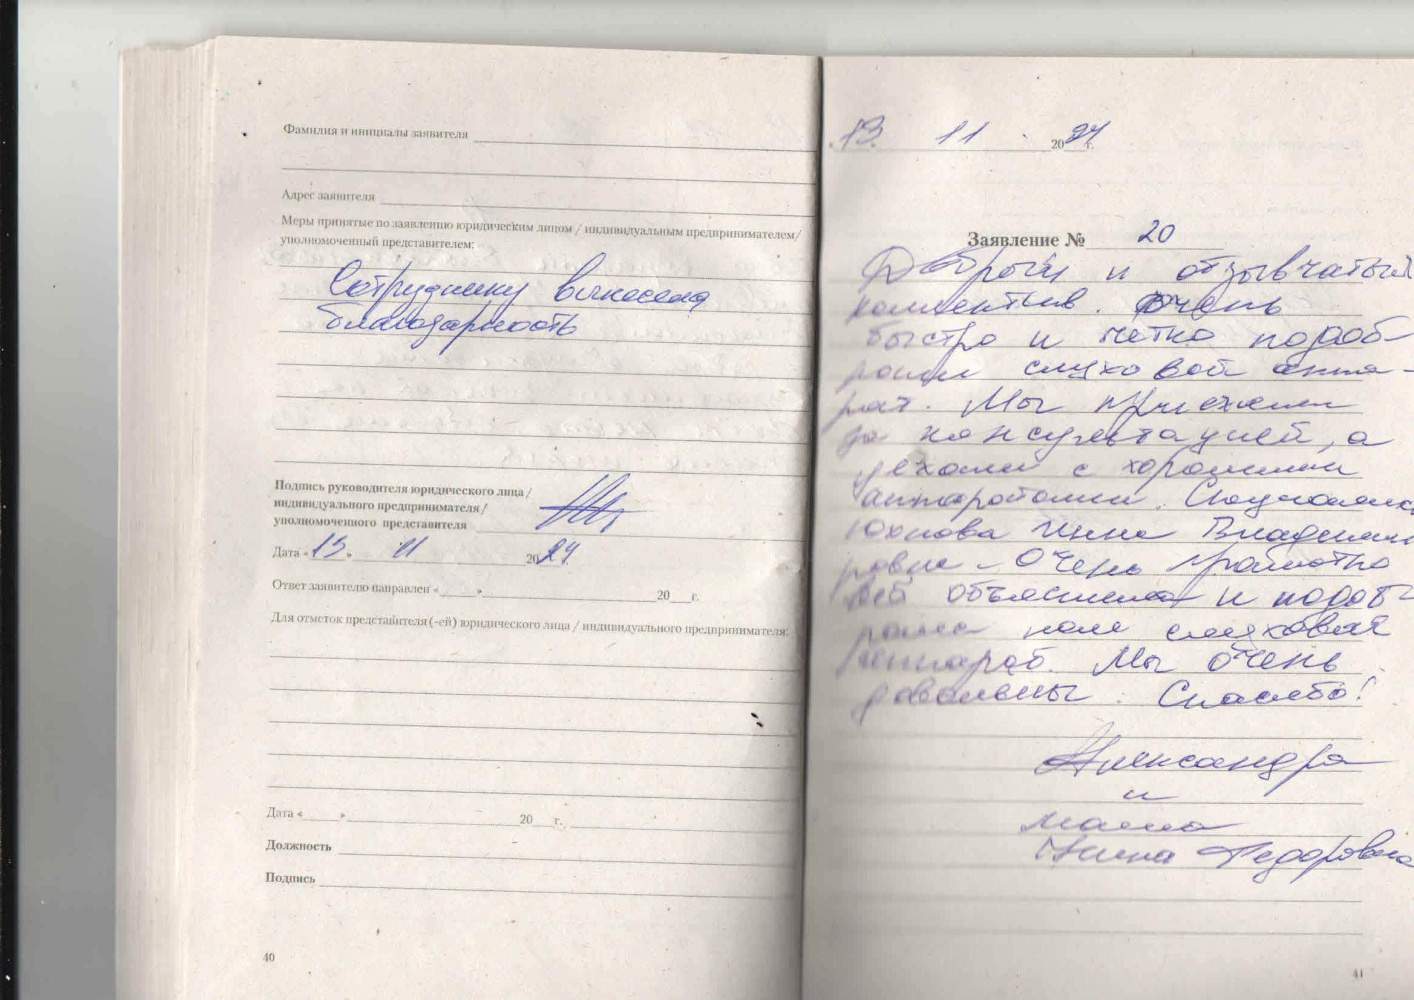 Фамилия и инициалы заявителя
Адрес заявителя
Меры принятые по заявлению юридическим лицом / индивидуальным предпринимателем/
уполномоченный представителем:
Сотруднику вынесена
благодарность
Подпись руководителя юридического лица /
индивидуального предпринимателя /
уполномоченного представителя
Дата «13» 11 2024
Ответ заявителю направлен «___» 20__г.
Для отметок представителя (-ей) юридического лица / индивидуального предпринимателя:
Дата «___» 20__г.
Должность
Подпись
40
13. 11 2024г.
Заявление № 20
Добрый и отзывчатый
коллектив. Очень
быстро и четко подоб-
рали слуховой аппа-
рат. Мы приехали
за консультацией, а
уехали с хорошими
аппаратами. Специалист
Юхнова Инна Владими
ровна - очень грамотно
всё объяснила и подоб
рала нам слуховой
аппарат. Мы очень
довольны. Спасибо!
Александра
и
мама
Нина Федоровна
41